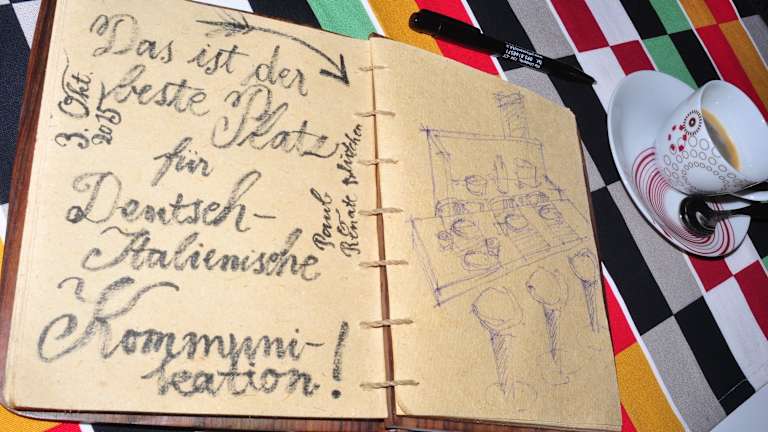 Das ist der
beste Platz
für
Deutsch-
Italienische
Kommuni-
kation!
3. Okt.
2015
Paul
&
Renate